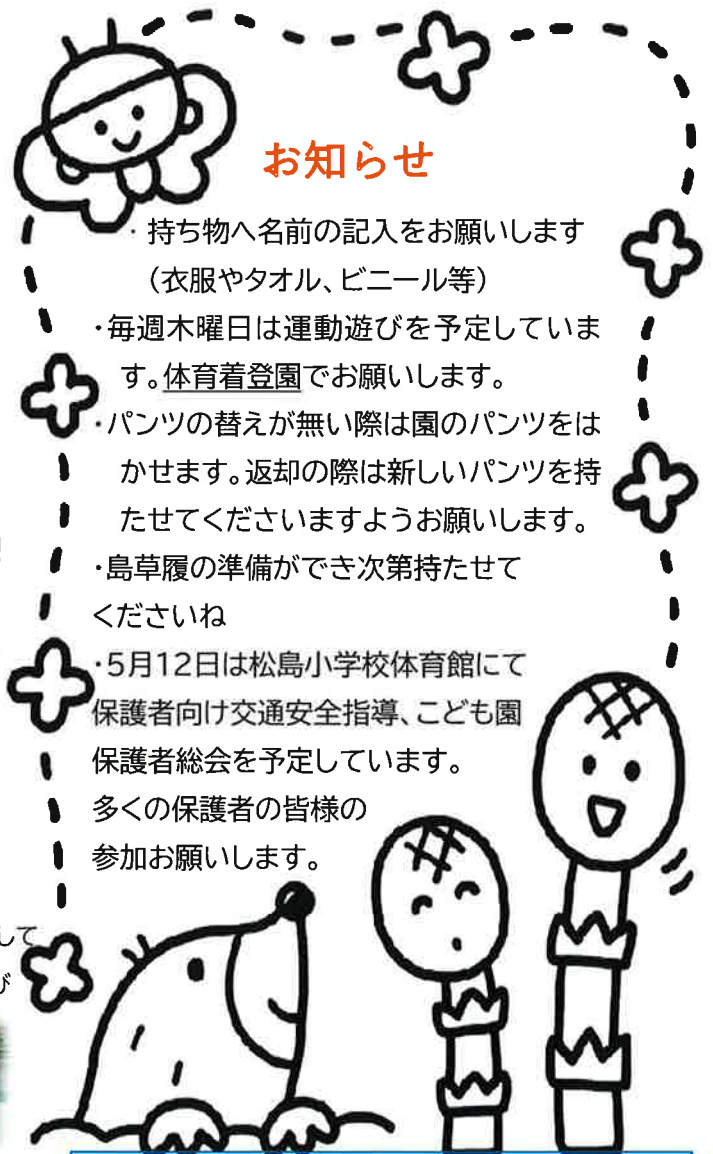 お知らせ
・持ち物へ名前の記入をお願いします
（衣服やタオル、ビニール等）
・毎週木曜日は運動遊びを予定していま
す。体育着登園でお願いします。
・パンツの替えが無い際は園のパンツをは
かせます。返却の際は新しいパンツを持
たせてくださいますようお願いします。
・島草履の準備ができ次第持たせて
くださいね
・5月12日は松島小学校体育館にて
保護者向け交通安全指導、こども園
保護者総会を予定しています。
多くの保護者の皆様の
参加お願いします。
して
び